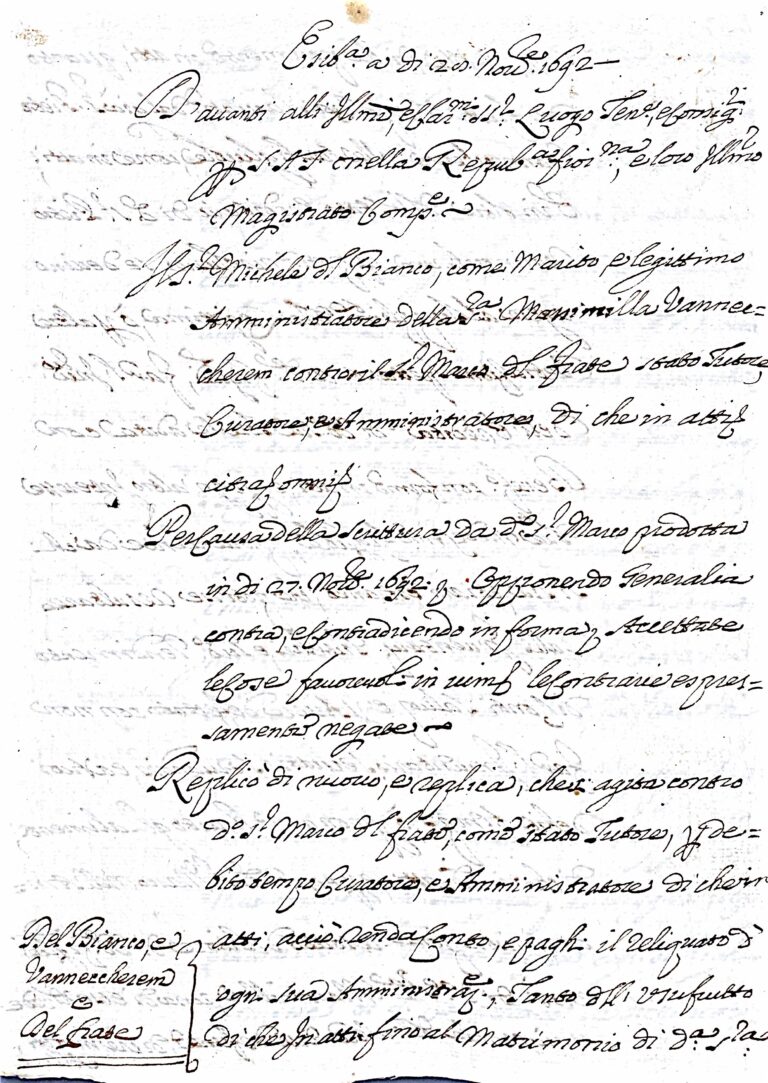 Esib.ta a di 28. Nov.re 1692 —
Davanti alli Ill.mi, e Clar.mi SS.ri Luogo Ten.e, e Consig.ri
p S. A. S. nella Repub.ca fior.na, e loro Ill.mo
Magistrato Comp.e
Il S.r Michele del Bianco, come Marito, e legittimo
Amministratore della S.ra Massimilla Vannec=
cherem contro il S.r Marco del frate stato Tutore,
Curatore, e Amministratore, di che in atti
citra omnis
Per Causa della scrittura da d.o S.r Marco prodotta
in di 27. Nov.re 1692. Opponendo Generalia
contra, e Contradicendo in forma, Accettate
le Cose favorevol: in le Contrarie espres=
samente negate
Replicò di nuovo, e replica, che agita contro
d.o S.r Marco del frate, come stato Tutore, p de=
bito tempo Curatore, e Amministratore di che in
atti, acciò renda Conto, e paghi il Reliquato d
ogni sua Amministraz.e, Tanto delli Usufrutto
di che In atti fino al Matrimonio di d.a S.ra
Del Bianco, e
Vanneccherem
e
Del frate